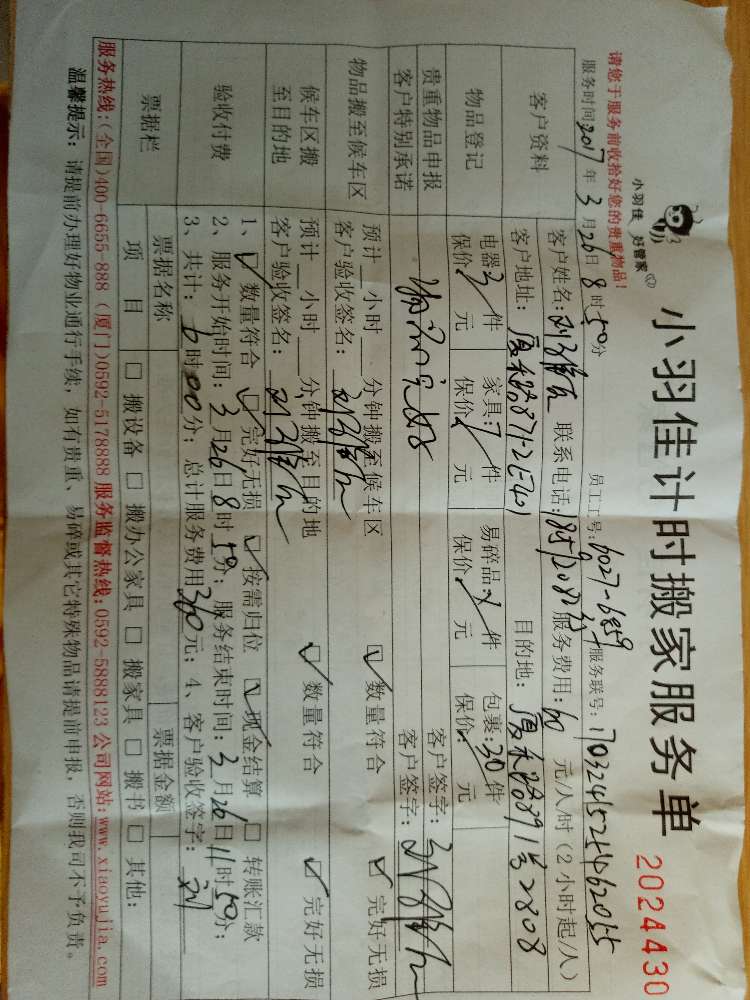 小羽佳 好管家
小羽佳计时搬家服务单
2024430
请您于服务前收拾好您的贵重物品!
员工工号: 6027-6859 服务联号:
服务时间: 2017年 3月26日 8时50分
客户资料
客户姓名: 联系电话: 服务费用: 60 元/人/时 (2小时起/人)
客户地址: 目的地:
物品登记
电器: 件 家具: 件 易碎品: 件 包裹: 30 件
保价: 元 保价: 元 保价: 元 保价: 元
贵重物品申报 客户签字:
客户特别承诺 客户签字:
物品搬至候车区
预计__小时__分钟搬至候车区 ☑数量符合 ☑完好无损
客户验收签名:
候车区搬至目的地
预计__小时__分钟搬至目的地 ☑数量符合 ☑完好无损
客户验收签名:
验收付费
1、☑数量符合 ☑完好无损 ☑按需归位 ☑现金结算 □转账汇款
2、服务开始时间: 3月26日8时 分; 服务结束时间: 3月26日11时50分;
3、共计: 6时00分; 总计服务费用360元; 4、客户验收签字: 刘
票据栏
票据名称 票据金额
项目 □搬设备 □搬办公家具 □搬家具 □搬书 □其他:
服务热线:(全国)400-6655-888 (厦门)0592-5178888 服务监督热线:0592-5888123 公司网站:www.xiaoyujia.com
温馨提示: 请提前办理好物业通行手续, 如有贵重、易碎或其它特殊物品请提前申报, 否则我司不予负责。